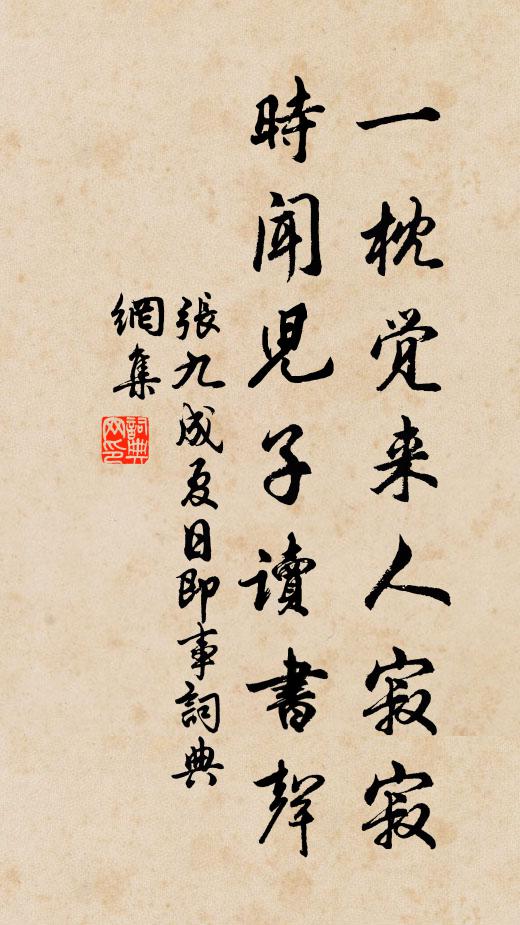 一枕觉来人寂寂
時闻児子讀書聲
張九成夏日即事詞典
網集
詞典网印